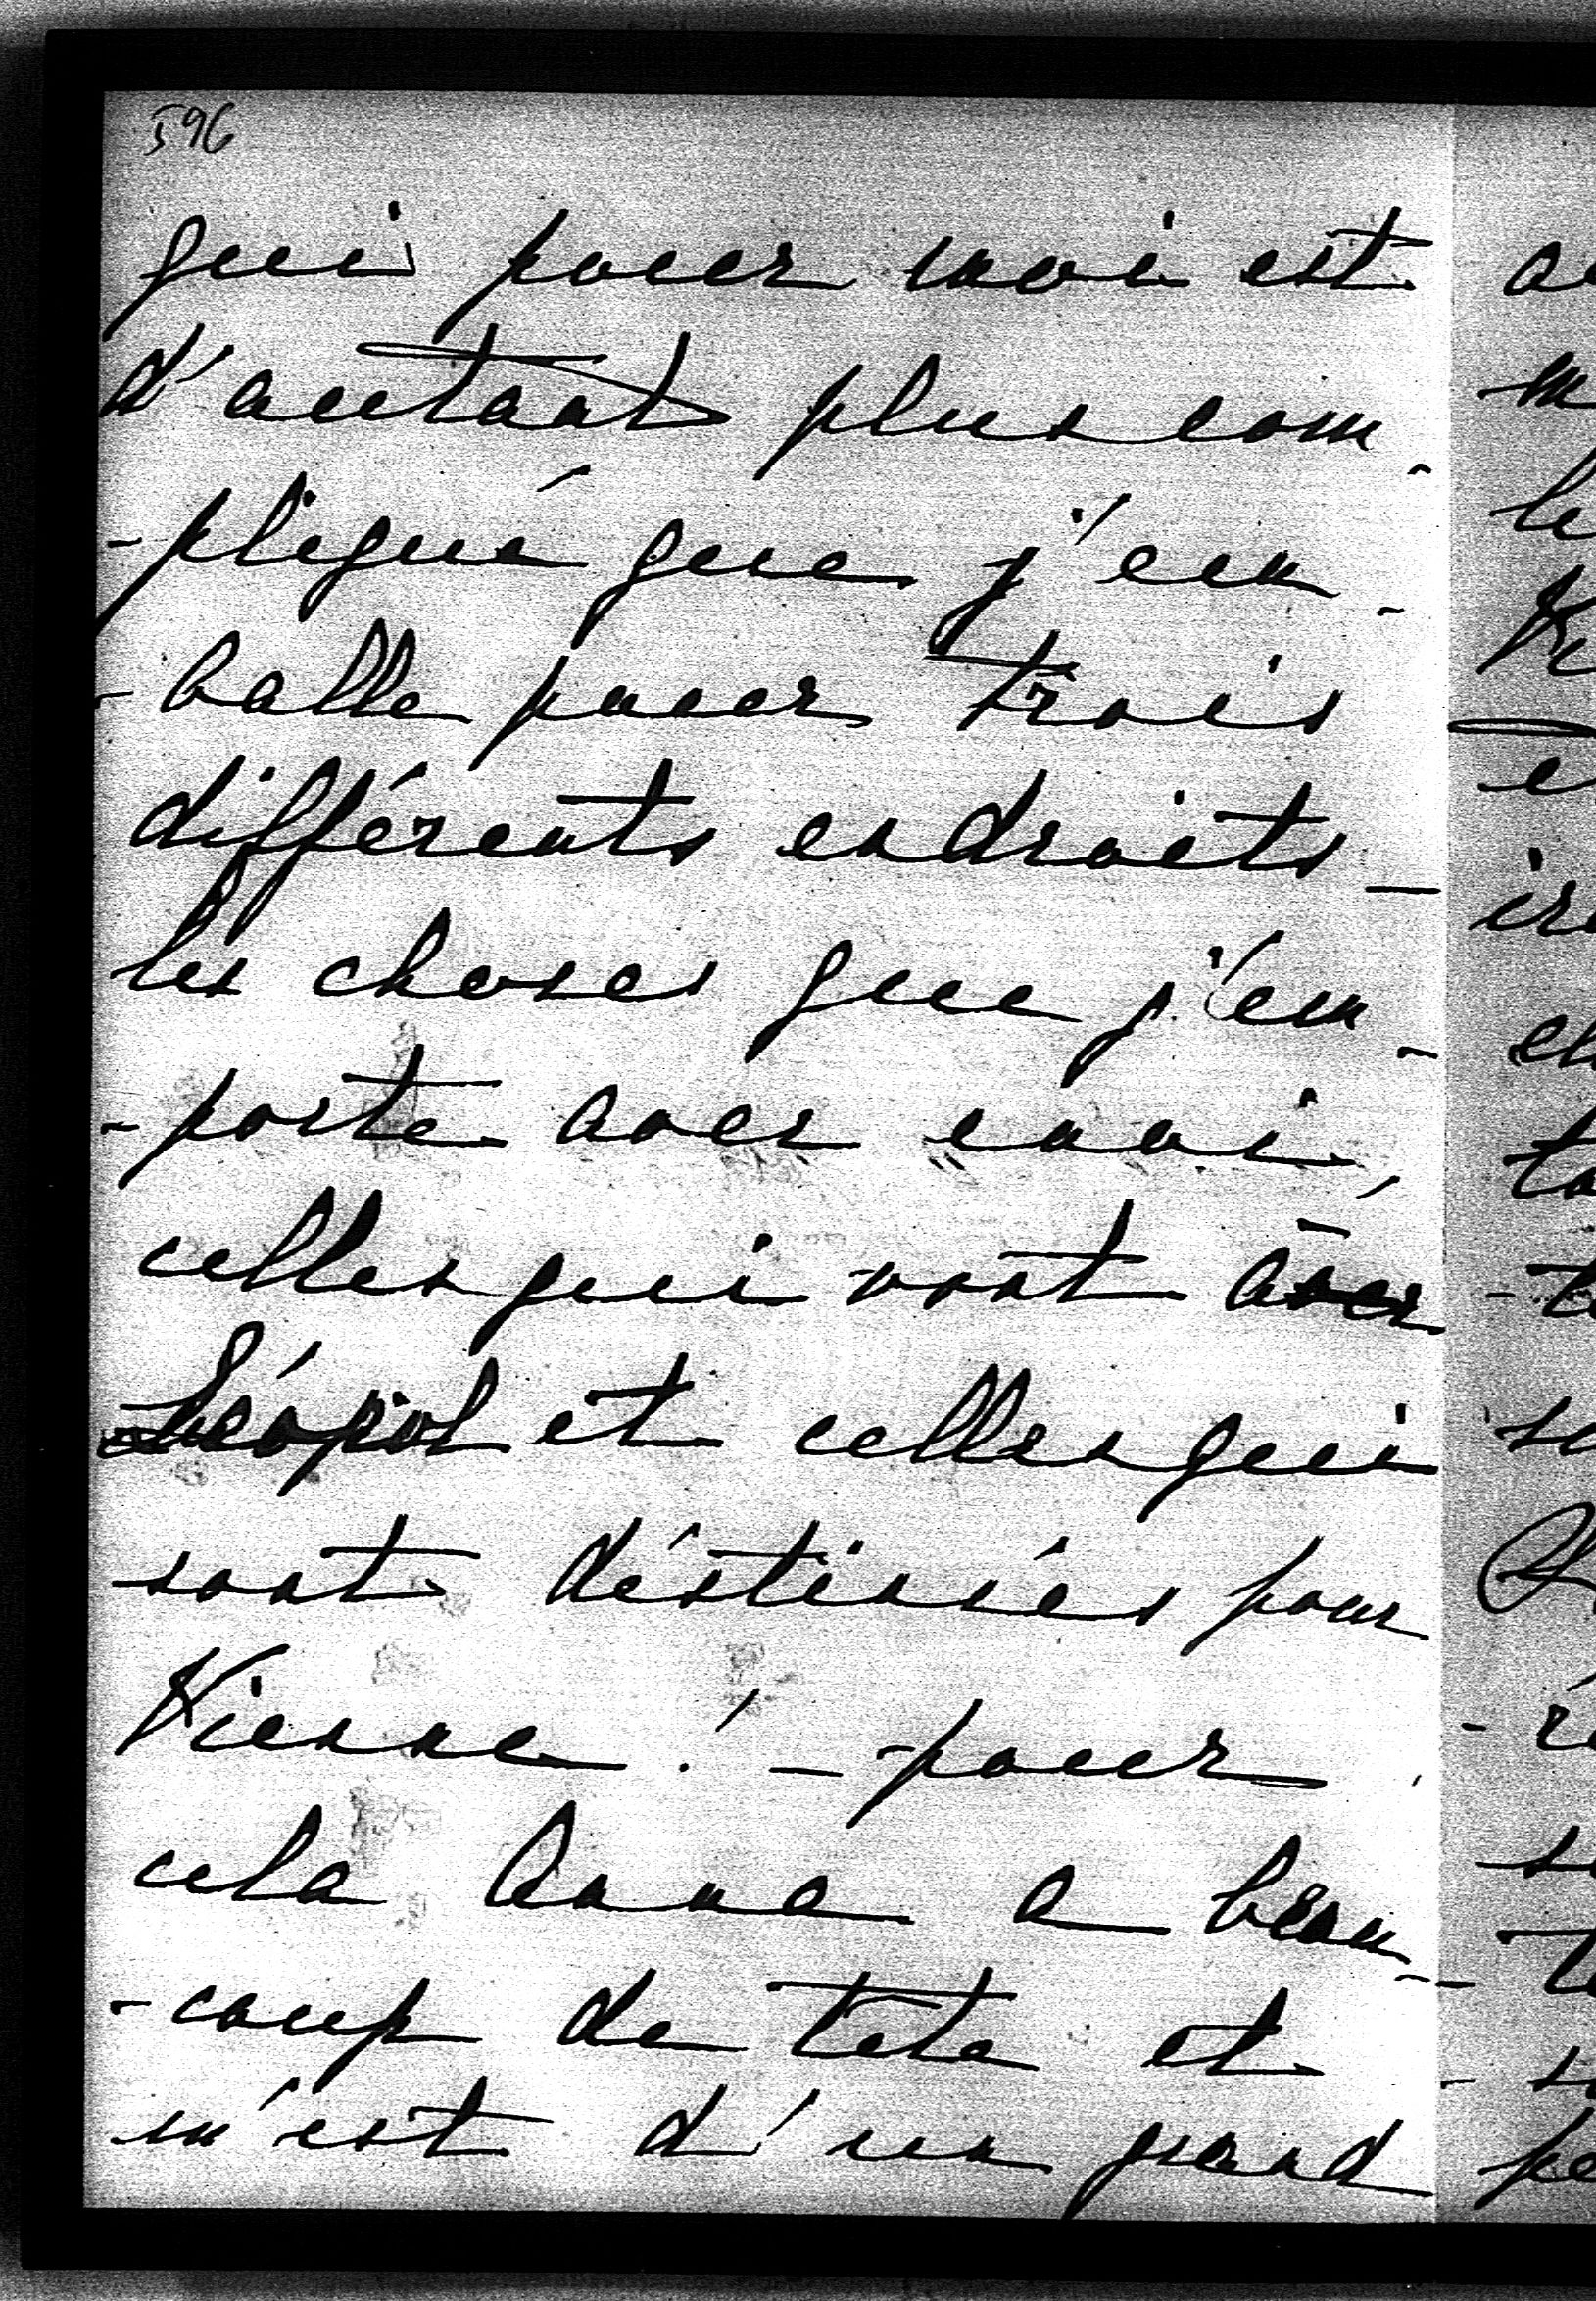 596
qui pour moi est
d'autant plus com-
-pliqué que j'em-
-balle pour trois
différents endroits —
les choses que j'em-
-porte avec moi,
celles qui vont avec
Léopol et celles qui
sont déstinées pour
Vienne! — pour
cela Anna a beau-
-coup de tête et
m'est d'un grand